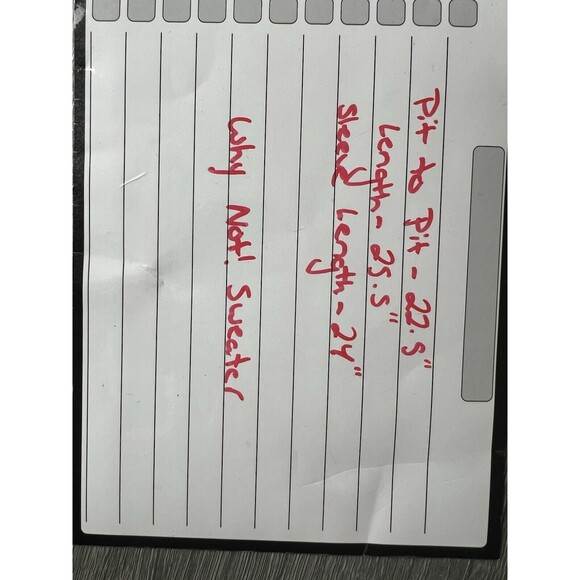 Pit to Pit - 22.5"
Length - 25.5"
Sleeve Length - 24"
Why Not! Sweater